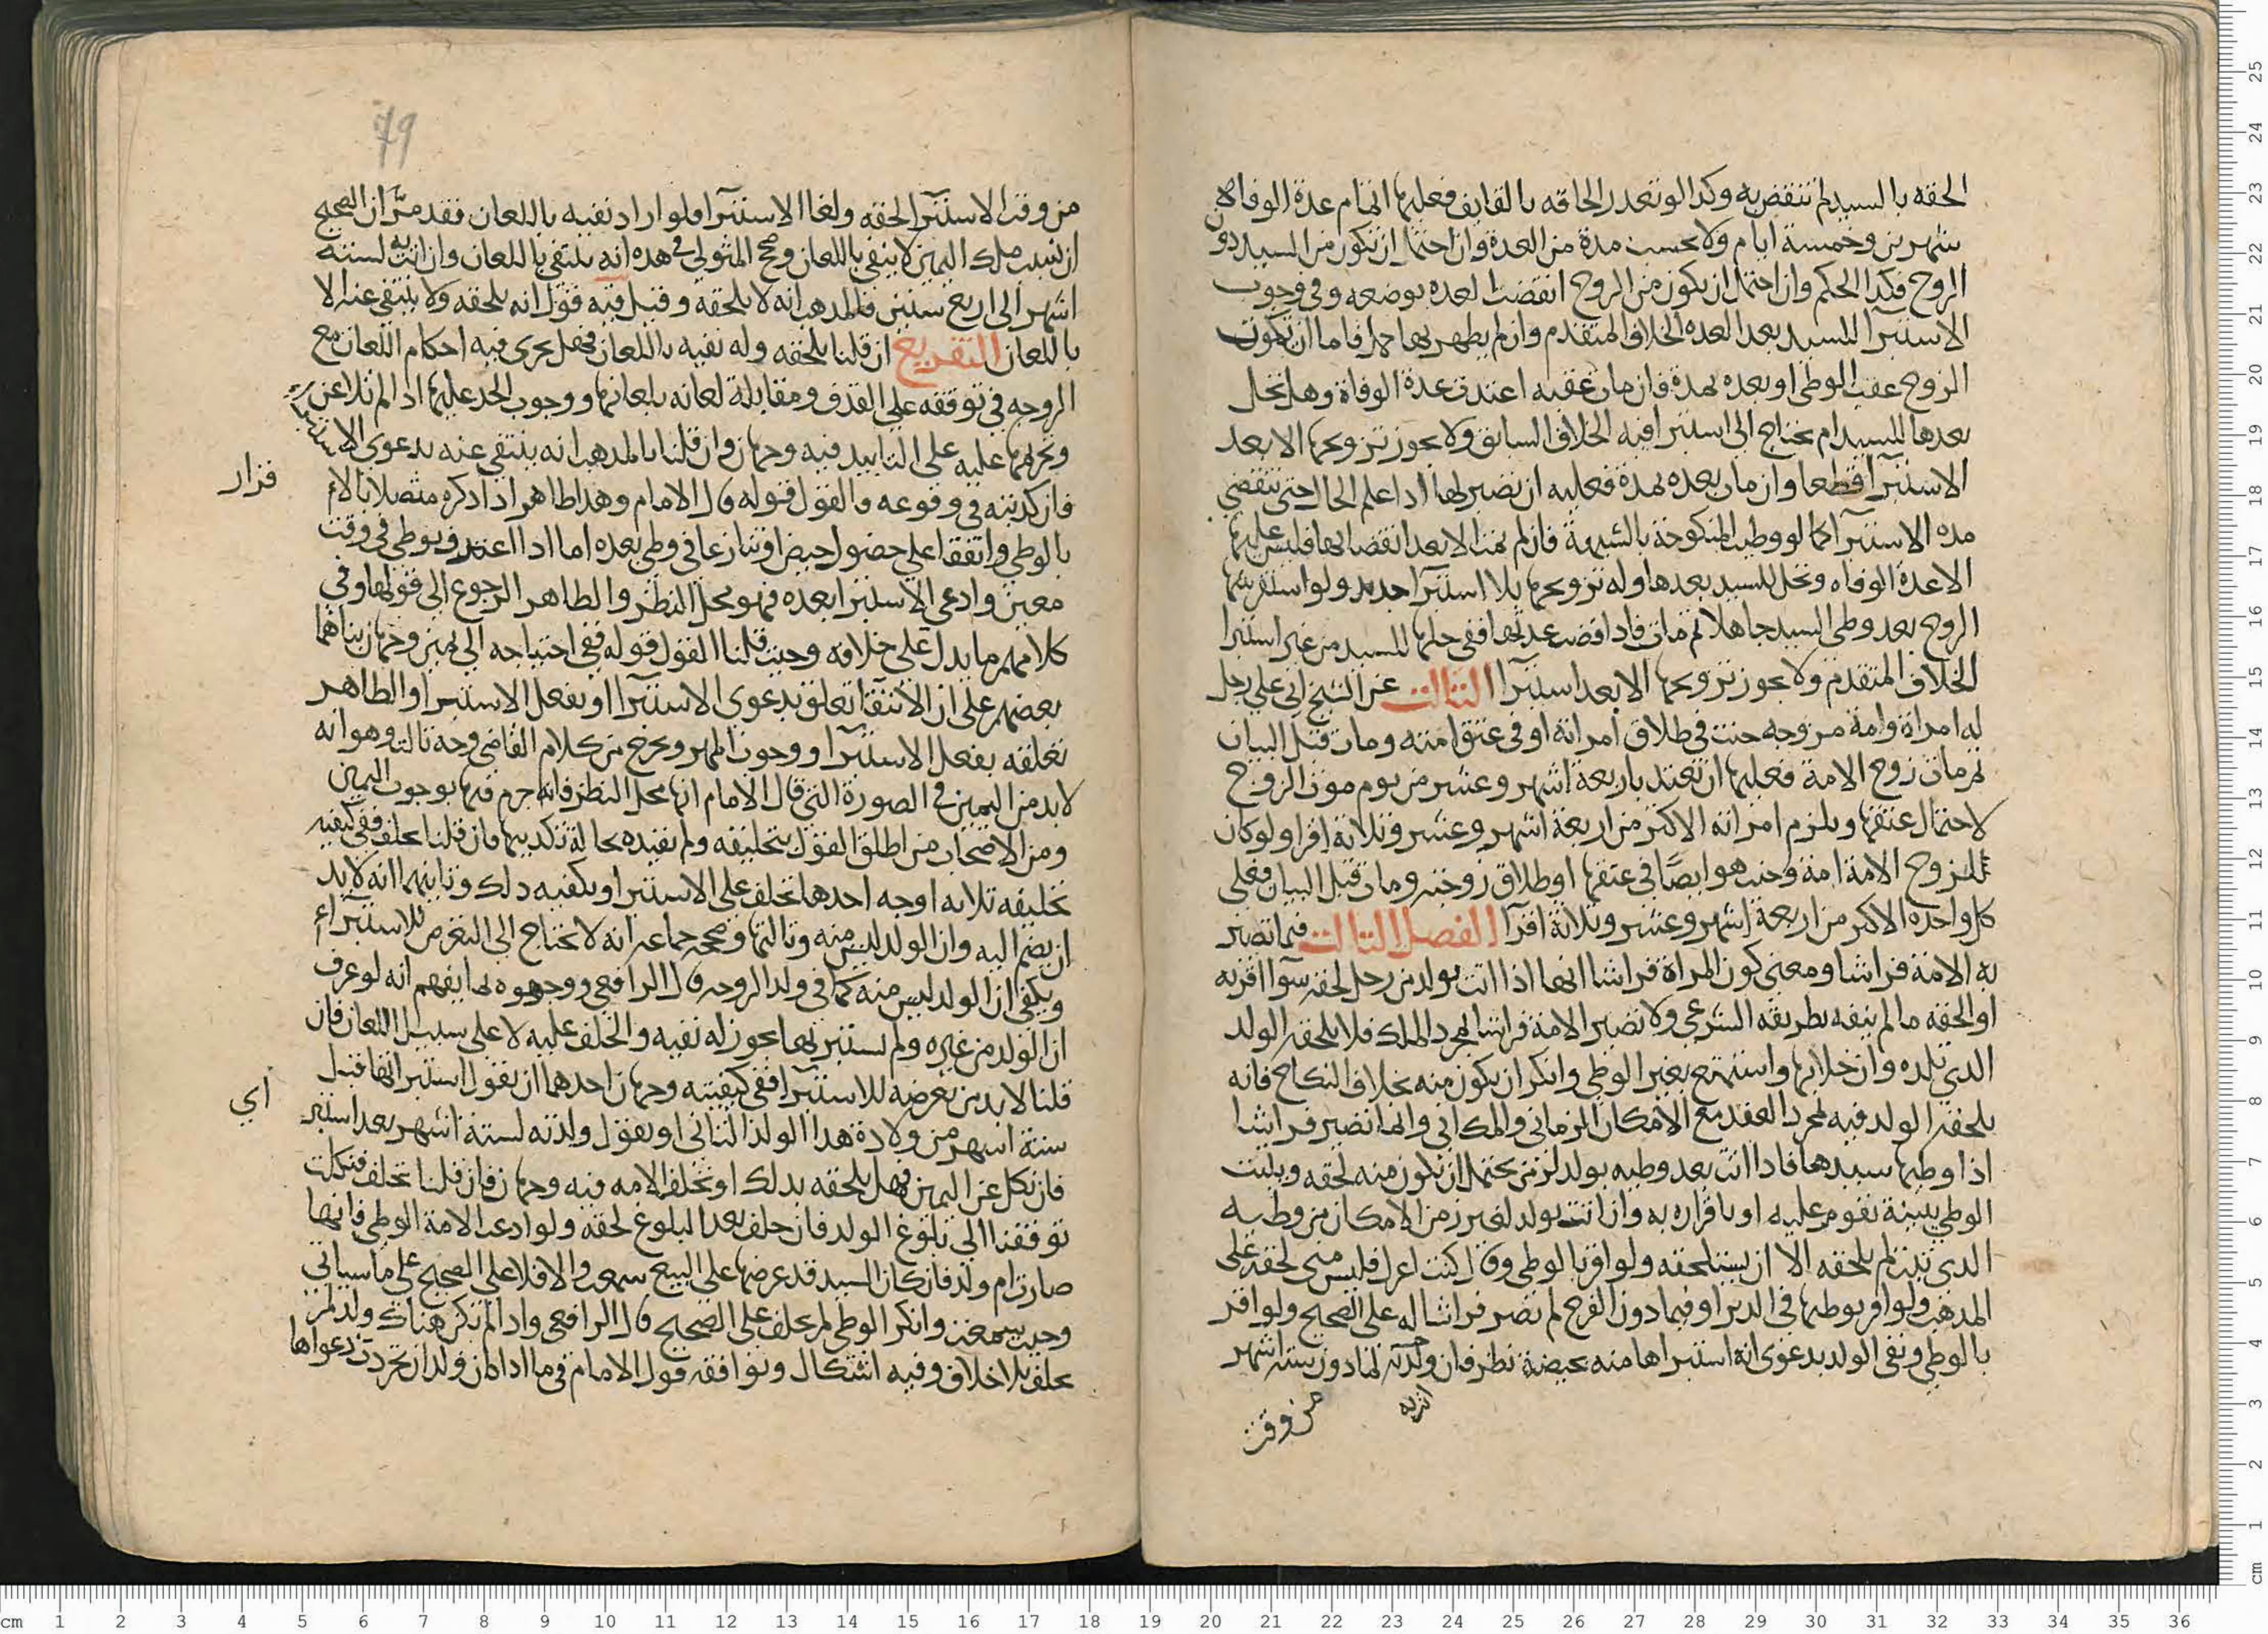 الحقه بالسيد لم تنقض به وكذا لو تعذر الحاقه بالقايف فعليها اتمام عدة الوفاة
شهرين وخمسة ايام ولا تحسب مدة من العدة وان احتمل ان يكون من السيد دون
الزوج فكذا الحكم وان احتمل ان يكون من الزوج انقضت العده بوضعه وفي وجوب
الاستبرا للسيد بعد العده الخلاف المتقدم وان لم يظهر بها حمل فاما ان يموت
الزوج عقب الوطي او بعده بمدة فان مات عقبه اعتدت عدة الوفاة وهل تحل
بعدها للسيد ام تحتاج الى استبرا فيه الخلاف السابق ولا يجوز تزويجها الا بعد
الاستبرا قطعا وان مات بعده بمدة فعليه ان يصبر لها اذا علم الحال حتى تنقضي
مده الاستبرا كما لو وطيت المنكوحة بالشبهة فان لم يمت الا بعد انقضايها فليس عليها
الا عدة الوفاه وتحل للسيد بعدها وله تزويجها بلا استبرا جديد ولو استفرشها
الزوج بعد وطي السيد جاهلا ثم مات فاذا قضت عدتها ففي حلها للسيد من غير استبرا
الخلاف المتقدم ولا يجوز تزويجها الا بعد استبرا الثالث عن الشيخ ابي علي رجل
له امراة وامة مزوجه حنث في طلاق امراته او في عتق امته ومات قبل البيان
ثم مات زوج الامة فعليها ان تعتد باربعة اشهر وعشر من يوم موت الزوج
لاحتمال عتقها ويلزم امراته الاكثر من اربعة اشهر وعشر وثلاثة اقرا ولو كان
للزوج الامة امة وحنث هو ايضا في عتقها او طلاق زوجته ومات قبل البيان فعلى
كل واحده الاكثر من اربعة اشهر وعشر وثلاثة اقرا الفصل الثالث فيما تصير
به الامة فراشا ومعنى كون المراة فراشا انها اذا اتت بولد من رجل لحقه سوا اقر به
او الحقه ما لم ينفه بطريقه الشرعي ولا تصير الامة فراشا بمجرد الملك فلا يلحقه الولد
الذي تلده وان خلا بها واستمتع بغير الوطي وانكر ان يكون منه بخلاف النكاح فانه
يلحقه الولد فيه بمجرد العقد مع الامكان الزماني والمكاني وانما تصير فراشا
اذا وطيها سيدها فاذا اتت بعد وطيه بولد لزمن يحتمل ان يكون منه لحقه ويثبت
الوطي ببينة تقوم عليه او باقراره به وان اتت بولد لغير زمن الامكان من وطيه
الذي ثبت لم يلحقه الا ان يستلحقه ولو اقر بالوطي وقال كنت اعزل فليس مني لحقه على
المذهب ولو اقر بوطيها في الدبر او فيما دون الفرج لم تصر فراشا له على الصحيح ولو اقر
بالوطي ونفى الولد بدعوى انه استبراها منه بحيضة نظر فان ولدته لما دون ستة اشهر
من وقت
79
من وقت الاستبرا لحقه ولغا الاستبرا فلو اراد نفيه باللعان فقد مر ان الصحيح
ان نسب ملك اليمين لا ينفي باللعان وصحح المتولي في هذه انه ينتفي باللعان وان اتت به لستة
اشهر الى اربع سنين فالمذهب انه لا يلحقه وقيل فيه قول انه يلحقه ولا ينتفي عنه الا
باللعان التفريع ان قلنا يلحقه وله نفيه باللعان فهل يجري فيه احكام اللعان مع
الزوجه في توقفه على القذف ومقابلة لعانه بلعانها ووجوب الحد عليها اذا لم تلاعن
وتحريمها عليه على التابيد فيه وجهان وان قلنا بالمذهب انه ينتفي عنه بدعوى الاستبراء
فان كذبته في وقوعه فالقول قوله قال الامام وهذا ظاهر اذا ذكره متصلا بالاقرار
بالوطي واتفقا على حصول حيض وتنازعا في وطي بعده اما اذا اعترف بوطي في وقت
معين وادعى الاستبرا بعده فهو محل النظر والظاهر الرجوع الى قولها وفي
كلامهم ما يدل على خلافه وحيث قلنا القول قوله ففي احتياجه الى يمين وجهان بناهما
بعضهم على ان الانتفا تعلق بدعوى الاستبرا او بفعل الاستبرا والظاهر
تعلقه بفعل الاستبرا ووجوب المهر ويخرج من كلام القاضي وجه ثالث وهو انه
لا بد من اليمين في الصورة التي قال الامام انها محل النظر فانه جزم فيها بوجوب اليمين
ومن الاصحاب من اطلق القول بتحليفه ولم يقيده بحالة تكذيبها فان قلنا يحلف ففي كيفيه
تحليفه ثلاثه اوجه احدها يحلف على الاستبرا ويكفيه ذلك وثانيهما انه لا بد
ان يضم اليه وان الولد ليس منه وثالثها وصححه جماعه انه لا يحتاج الى التعرض للاستبراء
ويكفي ان الولد ليس منه كما في ولد الزوجه قال الرافعي ووجهوه بما يفهم انه لو عرف
ان الولد من غيره ولم يستبر بها يجوز له نفيه والحلف عليه لا على سبيل اللعان فان
قلنا لا بد من تعرضه للاستبرا ففي كيفيته وجهان احدهما ان يقول استبراتها قبل
ستة اشهر من ولادة هذا الولد الثاني او يقول ولدته لستة اشهر بعد استبراي
فان نكل عن اليمين فهل يلحقه بذلك او تحلف الامه فيه وجهان فان قلنا تحلف فنكلت
توقفنا الى بلوغ الولد فان حلف بعد البلوغ لحقه ولو ادعت الامة الوطي فانها
صارت ام ولد فان كان السيد قد عرضها على البيع سمعت والا فلا على الصحيح على ما سياتي
وحيث سمعت وانكر الوطي لم يحلف على الصحيح قال الرافعي واذا لم يكن هناك ولد لم
يحلف بلا خلاف وفيه اشكال ويوافقه قول الامام في ما اذا كان ولد ان تجردت دعواها